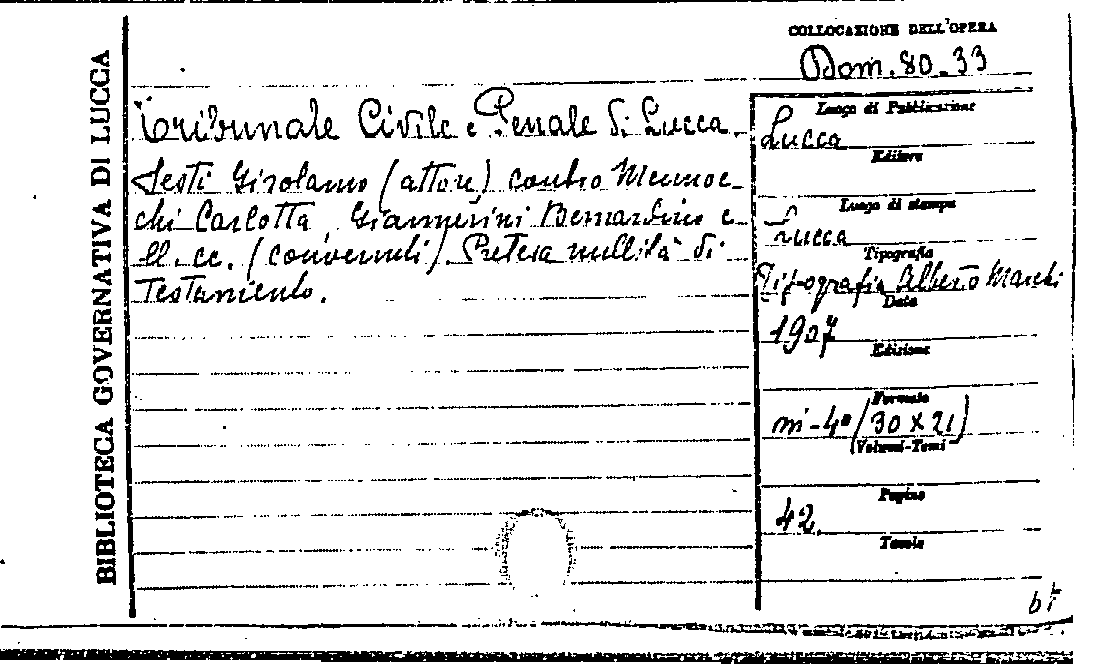 BIBLIOTECA GOVERNATIVA DI LUCCA
COLLOCAZIONE DELL'OPERA
Dom. 80.33
Tribunale Civile e Penale di Lucca -
Sesti Girolamo (attore) contro Mennoc-
chi Carlotta, Giannerini Bernardino e
ll. cc. (convenuti). Pretesa nullità di
Testamento.
Luogo di Pubblicazione
Lucca
Editore
Luogo di stampa
Lucca
Tipografia
Tipografia Alberto Marchi
Data
1907
Edizione
Formato
in-4º (30 x 21)
Volumi-Tomi
Pagine
42.
Tavole